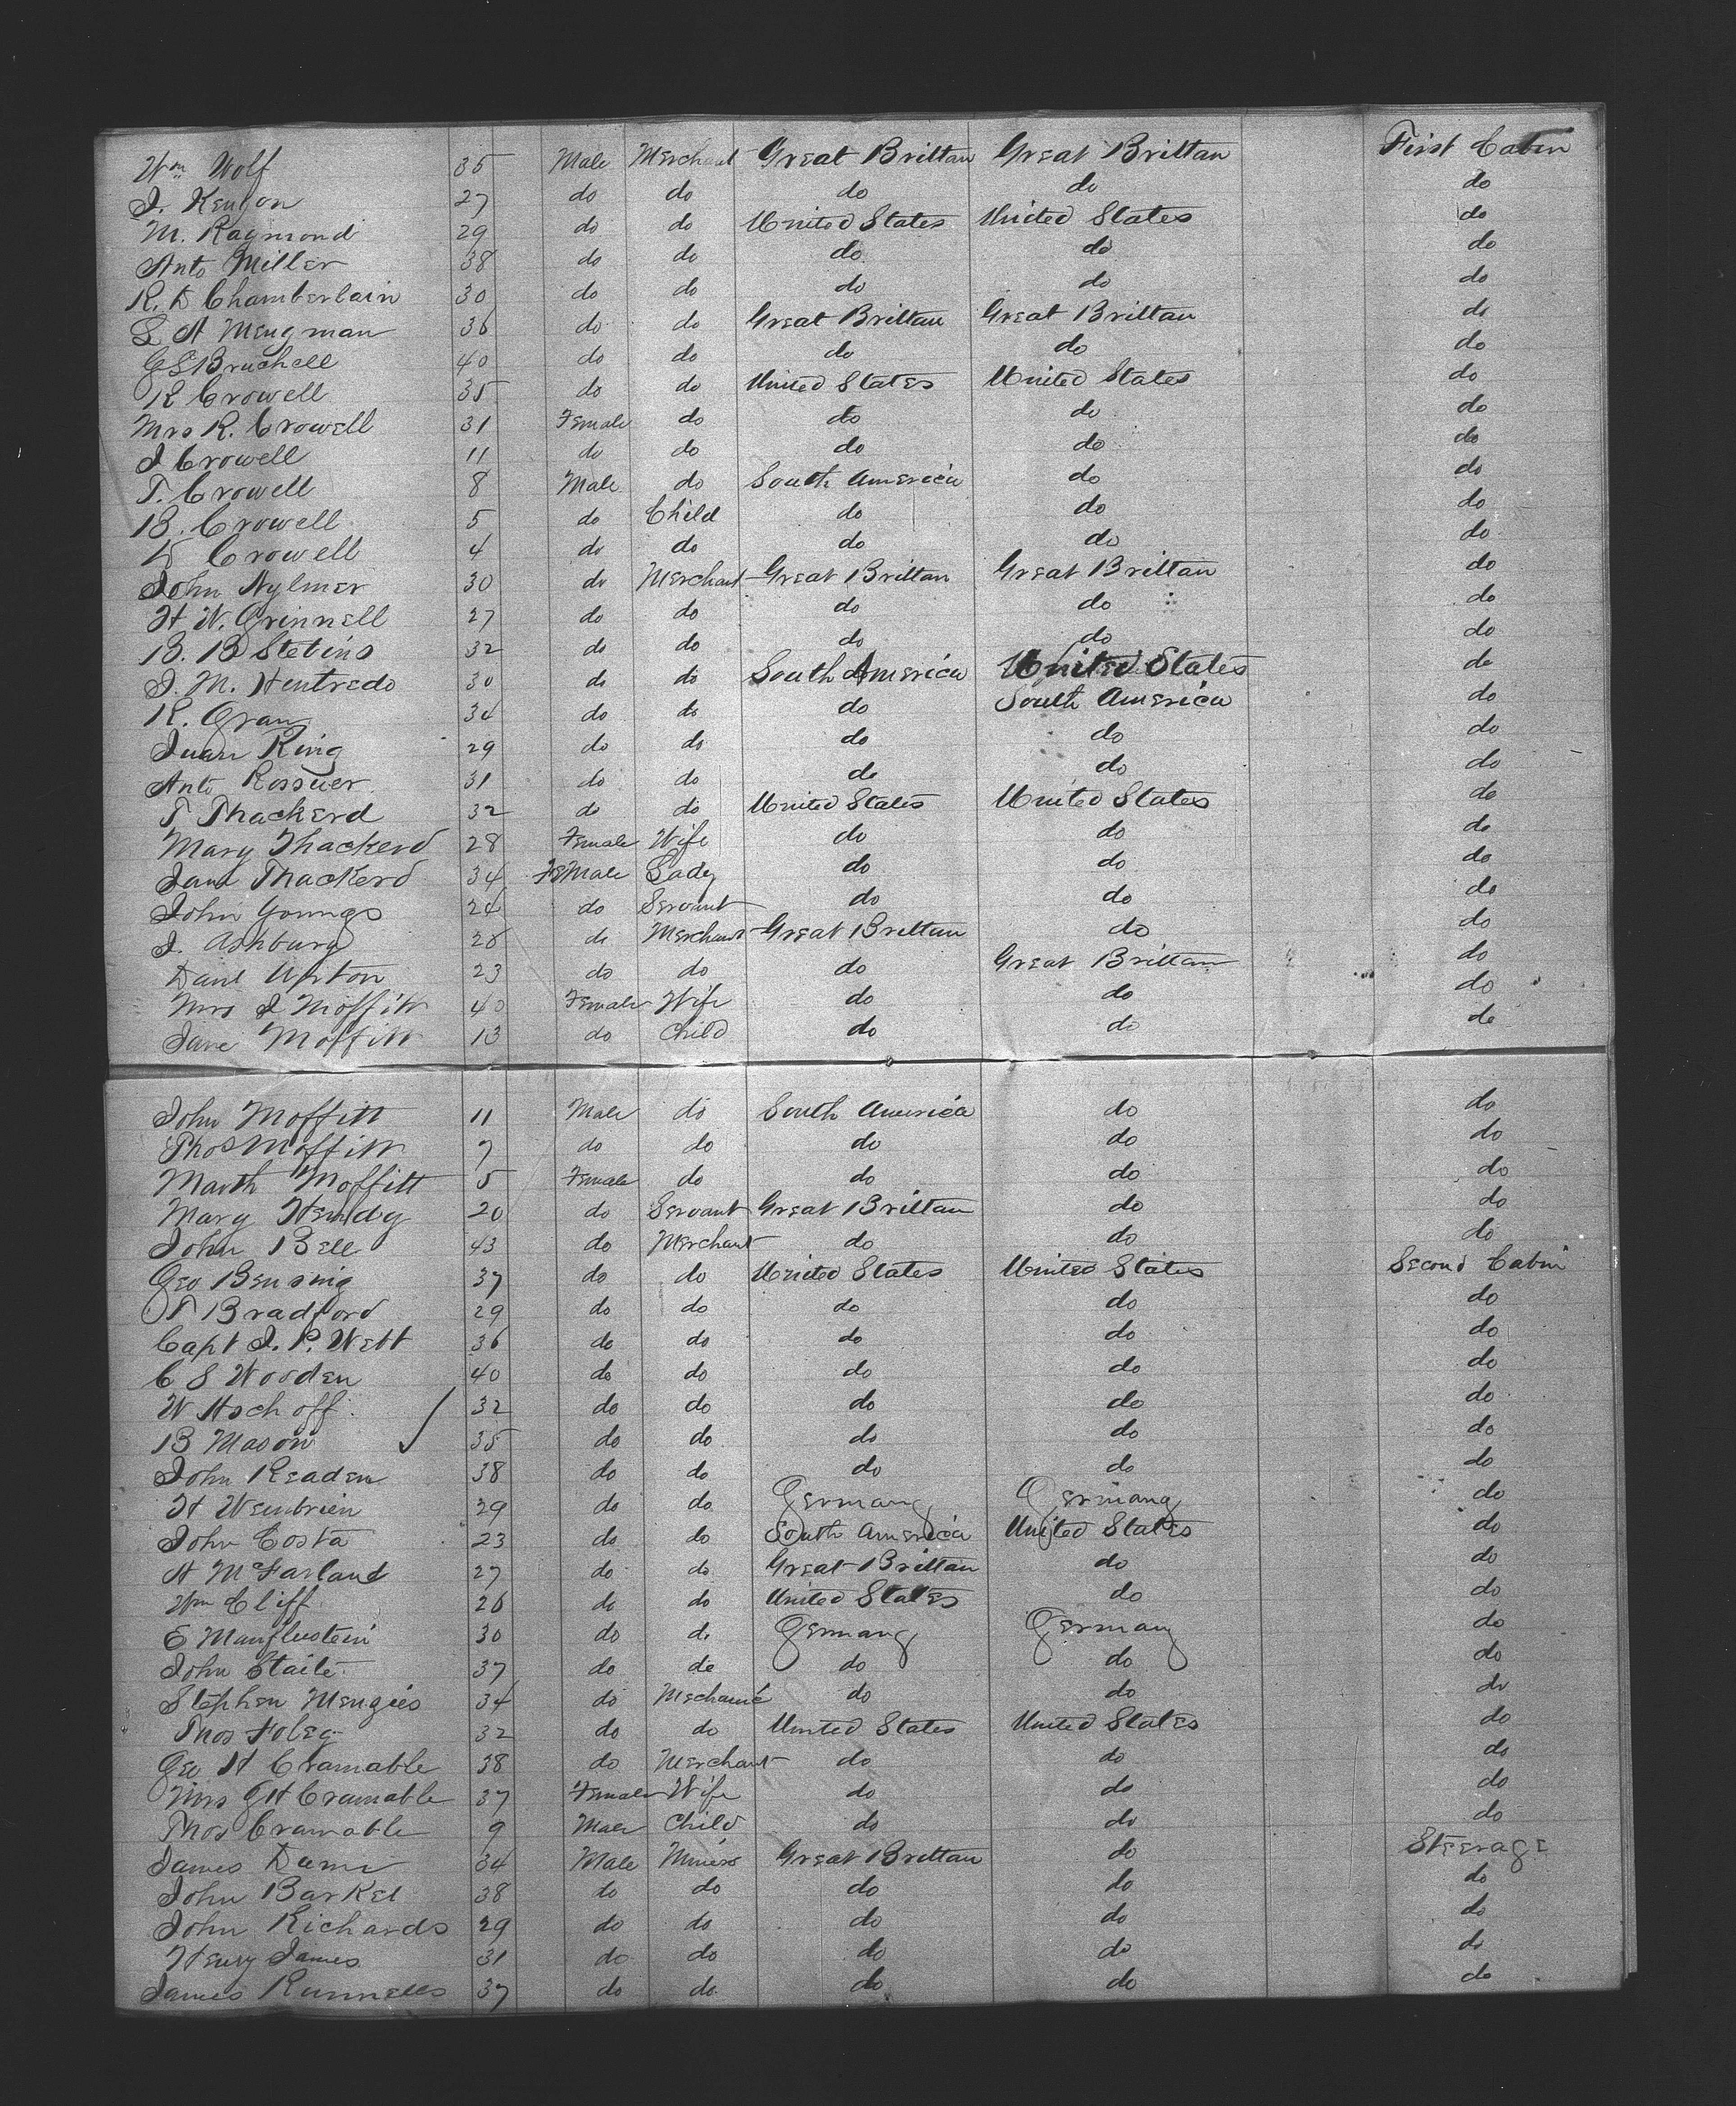 Wm Wolf 35 Male Merchant Great Brittan Great Brittan First Cabin
J. Kenyon 27 do do do do do
M. Raymond 29 do do United States United States do
Anto Miller 38 do do do do do
R. D Chamberlain 30 do do do do do
S A Mengman 36 do do Great Brittan Great Brittan do
G S Bruchell 40 do do do do do
R Crowell 35 do do United States United States do
Mrs R. Crowell 31 Female do do do do
J Crowell 11 do do do do do
T. Crowell 8 Male do South America do do
B. Crowell 5 do Child do do do
D Crowell 4 do do do do do
John Nylmer 30 do Merchant Great Brittan Great Brittan do
H W. Grinnell 27 do do do do do
B. B Stebins 32 do do do do do
J. M. Hentredo 30 do do South America United States do
R. Gran 34 do do do South America do
Juan King 29 do do do do do
Anto Rossuer 31 do do do do do
T Thackerd 32 do do United States United States do
Mary Thackerd 28 Female Wife do do do
Jane Thackerd 34 FeMale Lady do do do
John Youngs 24 do Servant do do do
J. Ashbury 28 do Merchant Great Brittan do do
Danl Upton 23 do do do Great Brittan do
Mrs J Moffitt 40 Female Wife do do do
Jane Moffitt 13 do Child do do do
John Moffitt 11 Male do South America do do
Thos Moffitt 7 do do do do do
Marth Moffitt 5 Female do do do do
Mary Hendy 20 do Servant Great Brittan do do
John Bell 43 do Merchant do do do
Geo Bensing 37 do do United States United States Second Cabin
T Bradford 29 do do do do do
Capt J. P. Webb 36 do do do do do
C S Wooden 40 do do do do do
W Aschoff 32 do do do do do
B Mason 35 do do do do do
John Readen 38 do do do do do
H Wenbrien 29 do do Germany Germany do
John Costa 23 do do South America United States do
A McFarland 27 do do Great Brittan do do
Wm Cliff 26 do do United States do do
E Manflustein 30 do do Germany Germany do
John Staite 37 do do do do do
Stephen Mengies 34 do Mechanic do do do
Thos Foley 32 do do United States United States do
Geo H Cramable 38 do Merchant do do do
Mrs G H Cramable 37 Female Wife do do do
Thos Cramable 9 Male Child do do do
James Dami 34 Male Miners Great Brittan do Steerage
John Barkel 38 do do do do do
John Richards 29 do do do do do
Henry James 31 do do do do do
James Runnells 37 do do do do do